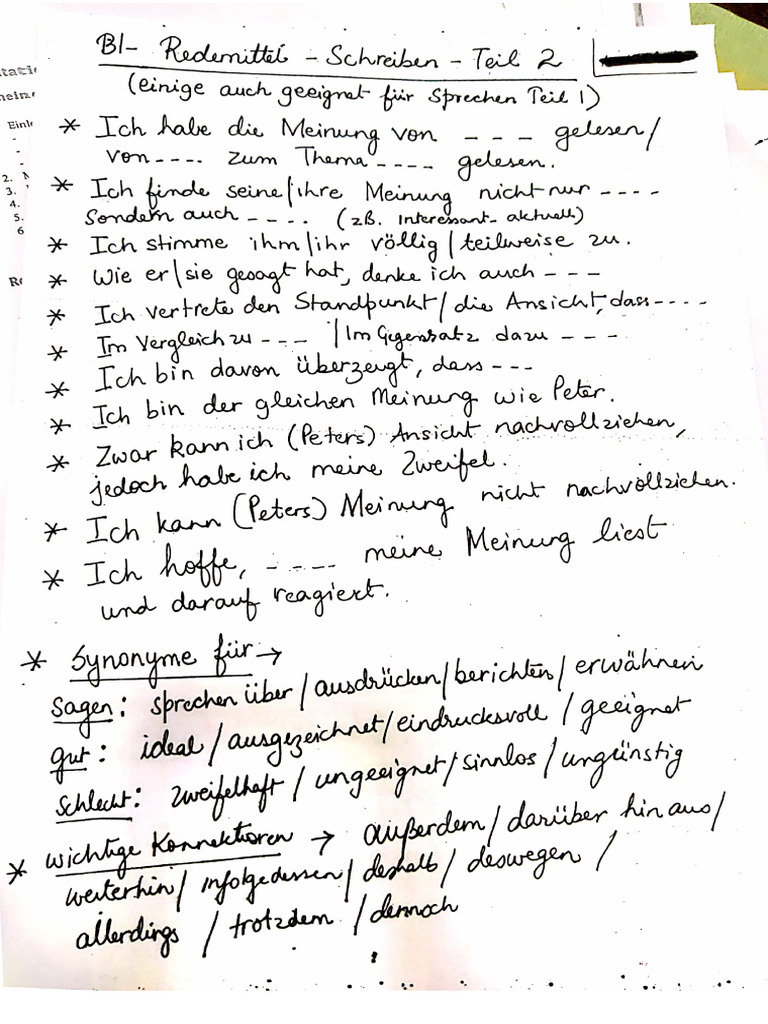 B1- Redemittel - Schreiben - Teil 2
(einige auch geeignet für Sprechen Teil 1)
* Ich habe die Meinung von - - - gelesen/
von - - - - zum Thema - - - - gelesen.
* Ich finde seine/ihre Meinung nicht nur - - - -
Sondern auch - - - - . (zB. interessant - aktuell)
* Ich stimme ihm/ihr völlig/teilweise zu.
* Wie er/sie gesagt hat, denke ich auch - - -
* Ich vertrete den Standpunkt/die Ansicht, dass - - - -
* Im Vergleich zu - - - /Im Gegensatz dazu - - -
* Ich bin davon überzeugt, dass - - -
* Ich bin der gleichen Meinung wie Peter.
* Zwar kann ich (Peters) Ansicht nachvollziehen,
jedoch habe ich meine Zweifel.
* Ich kann (Peters) Meinung nicht nachvollziehen.
* Ich hoffe, - - - - - meine Meinung liest
und darauf reagiert.
* Synonyme für →
Sagen: sprechen über / ausdrücken / berichten / erwähnen
gut: ideal / ausgezeichnet / eindrucksvoll / geeignet
Schlecht: zweifelhaft / ungeeignet / sinnlos / ungünstig
* wichtige Konnektoren → außerdem / darüber hinaus /
weiterhin / infolgedessen / deshalb / deswegen /
allerdings / trotzdem / dennoch